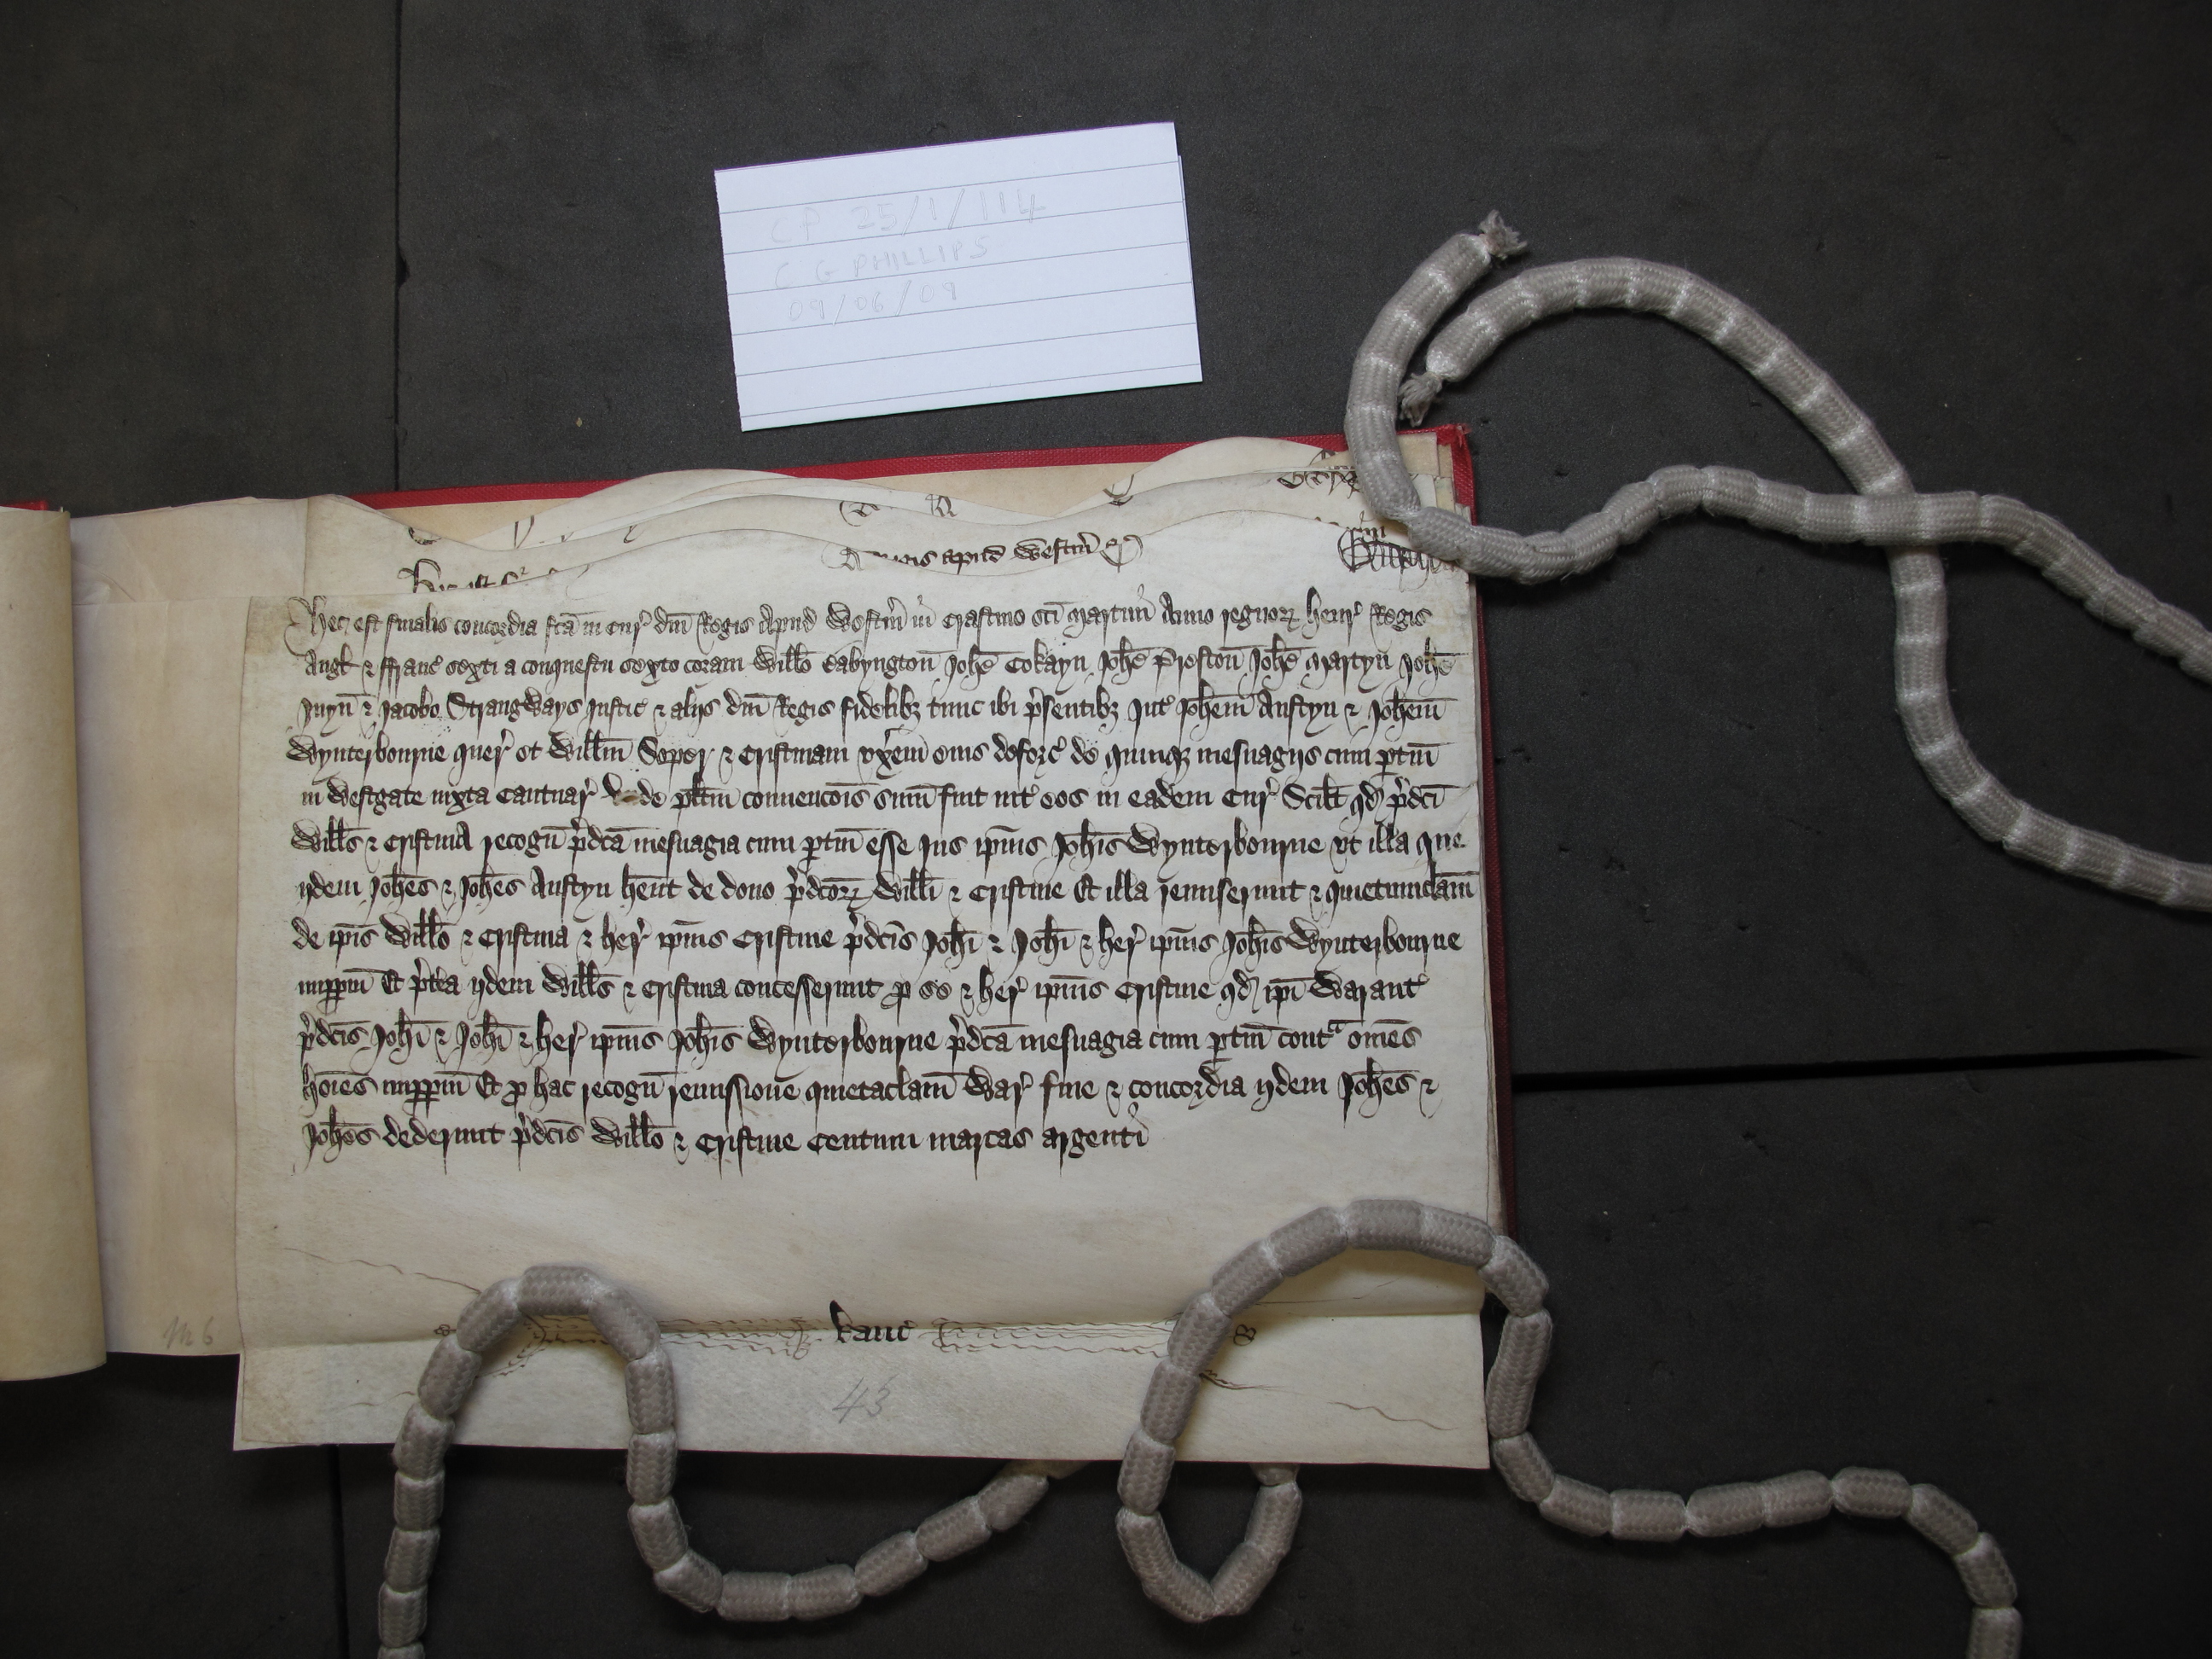 CP 25/1/114
C G PHILLIPS
09/06/09
apud Westm̄
Hec est finalis concordia fc̄a in Cur̉ dn̄i Regis Apud Westm̉ in Crastino sc̄i Martini Anno regnoꝝ Henr̉ Regis
Angl̄ ⁊ ffranc̉ sexti a conquestu sexto coram Will̄o Babyngton̄ Joh̄e Cokayn Joh̄e Preston̄ Joh̄e Martyn Joh̄e
Juyn̄ ⁊ Jacobo Strangways Justic̉ ⁊ alijs dn̄i Regis fidelibꝫ tunc ibi p̉sentibꝫ Int̉ Joh̄em Austyn ⁊ Joh̄em
Wynterbourne quer̉ et Will̄m Soper ⁊ Cristinam vx̉em eius deforc̉ de quinqꝫ mesuagijs cum ptin̄
in Westgate iuxta Cantuar̉ Vnde pl̄itm conuenc̄ois sum̄ fuit int̉ eos in eadem Cur̉ Scil̄t qd̄ p̉dc̄i
Will̄s ⁊ Cristina recogn̄ p̉dc̄a mesuagia cum ptin̄ esse Jus ip̄ius Joh̄is Wynterbourne vt illa que
ijdem Joh̄es ⁊ Joh̄es Austyn h̄ent de dono p̉dc̄oꝝ Will̄i ⁊ Cristine Et illa remiserunt ⁊ quietumclam̄
de ip̄is Will̄o ⁊ Cristina ⁊ her̉ ip̄ius Cristine p̉dc̄is Joh̄i ⁊ Joh̄i ⁊ her̉ ip̄ius Joh̄is Wynterbourne
imppm̄ Et p̉t̉ea ijdem Will̄s ⁊ Cristina concesserunt ꝑ se ⁊ her̉ ip̄ius Cristine qd̄ ip̄i Warant̉
p̉dc̄is Joh̄i ⁊ Joh̄i ⁊ her̉ ip̄ius Joh̄is Wynterbourne p̉dc̄a mesuagia cum ptin̄ contᵃ om̄es
hōies imppm̄ Et ꝓ hac recogn̄ remissione quietaclam̄ War̉ fine ⁊ concordia ijdem Joh̄es ⁊
Joh̄es dederunt p̉dc̄is Will̄o ⁊ Cristine Centum marcas argenti
Kanc̉
43
m 6